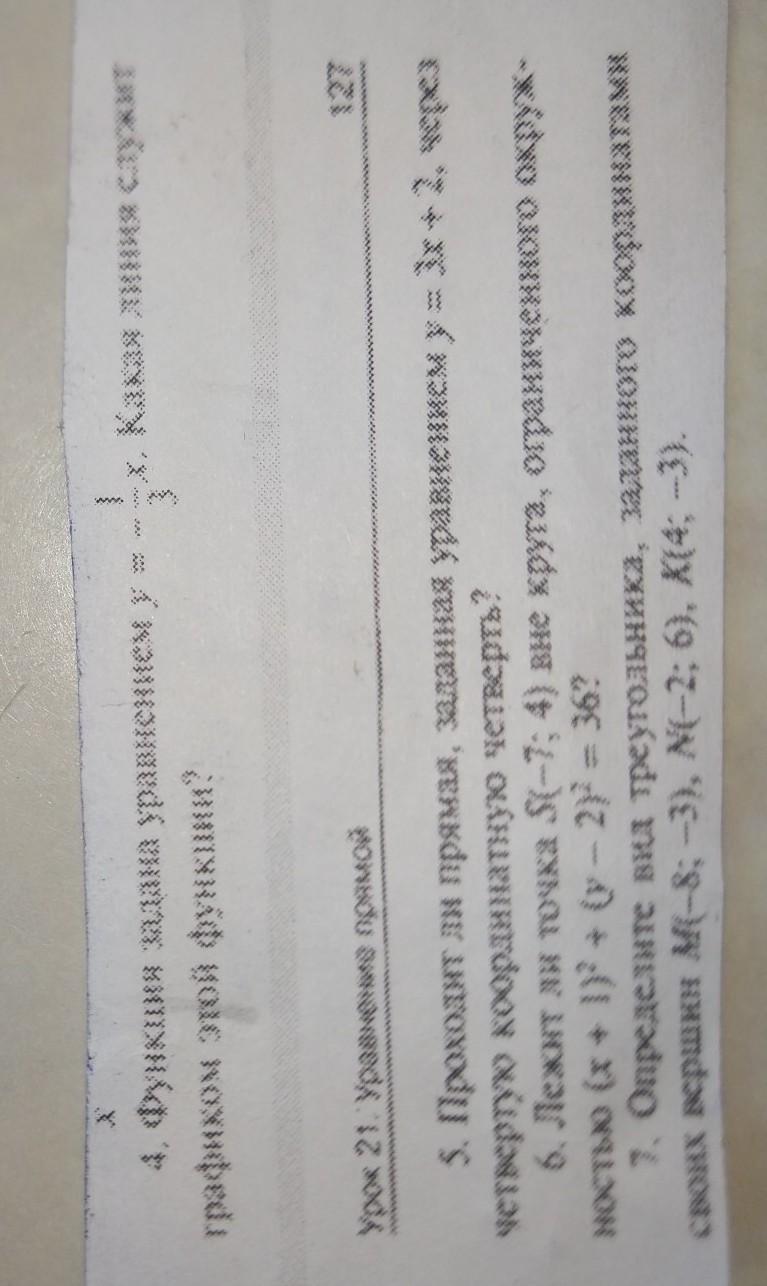 x
4. Функция задана уравнением y = −1/3 x. Какая линия служит
графиком этой функции?
Урок 21. Уравнение прямой 127
5. Проходит ли прямая, заданная уравнением y = 3x + 2, через
четвертую координатную четверть?
6. Лежит ли точка S(−7; 4) вне круга, ограниченного окруж-
ностью (x + 1)² + (y − 2)² = 36?
7. Определите вид треугольника, заданного координатами
своих вершин M(−8; −3), N(−2; 6), K(4; −3).